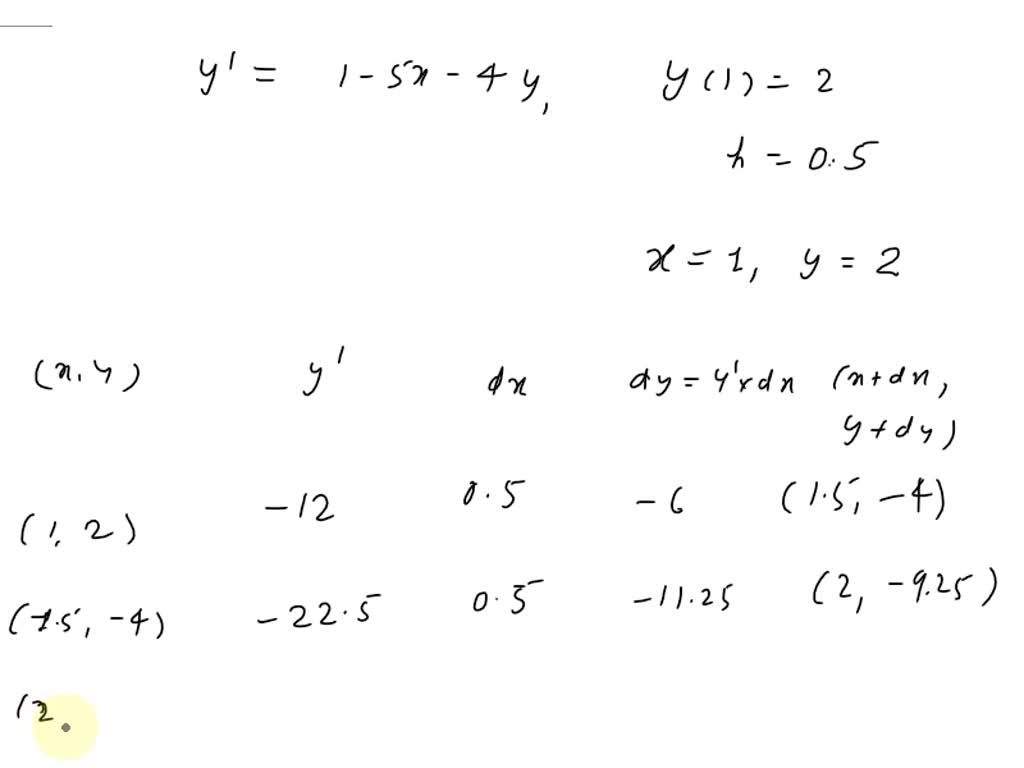 y' = 1 - 5x - 4y, y(1) = 2
h = 0.5
x = 1, y = 2
(x, y) y' dx dy = y' x dx (x + dx,
y + dy)
(1, 2) -12 0.5 -6 (1.5, -4)
(1.5, -4) -22.5 0.5 -11.25 (2, -9.25)
(2